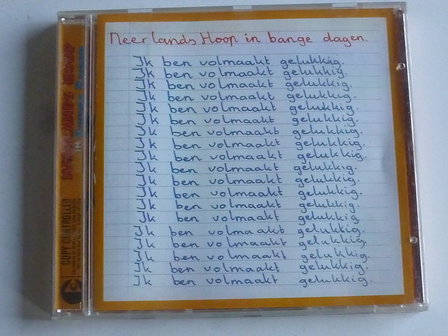 Neerlands Hoop in bange dagen.
Ik ben volmaakt gelukkig.
Ik ben volmaakt gelukkig.
Ik ben volmaakt gelukkig.
Ik ben volmaakt gelukkig.
Ik ben volmaakt gelukkig.
Ik ben volmaakt gelukkig.
Ik ben volmaakt gelukkig.
Ik ben volmaakt gelukkig.
Ik ben volmaakt gelukkig.
Ik ben volmaakt gelukkig.
Ik ben volmaakt gelukkig.
Ik ben volmaakt gelukkig.
Ik ben volmaakt gelukkig.
Ik ben volmaakt gelukkig
Ik ben volmaakt gelukkig.
Ik ben volmaakt gelukkig.
Ik ben volmaakt gelukkig.
Ik ben volmaakt gelukkig.
Ik ben volmaakt gelukkig.
NEERLANDS HOOP
COPY CONTROLLED